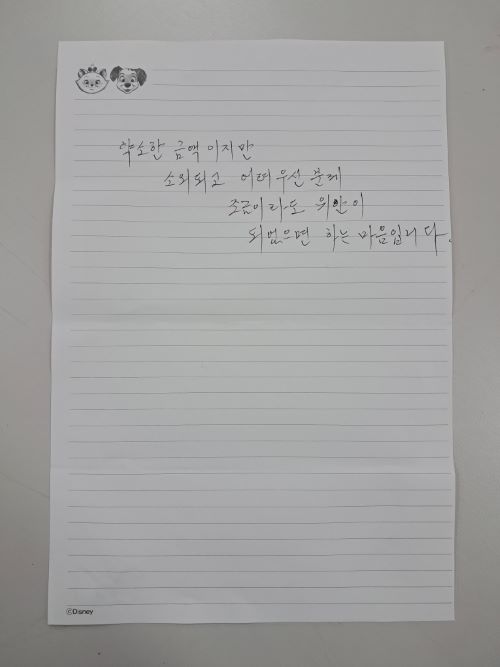 약소한 금액이지만
소외되고 어려우신 분께
조금이라도 위안이
되었으면 하는 마음입니다.
©Disney